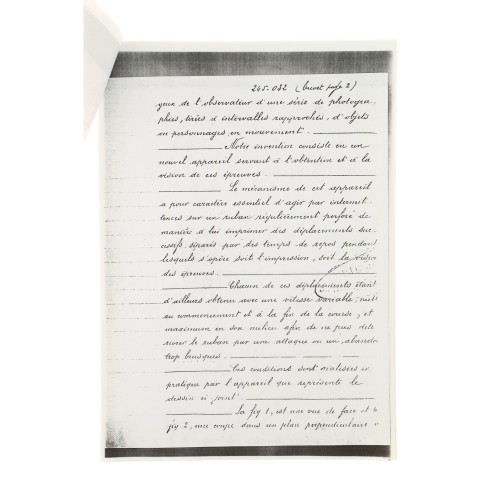 245-032 (brevet page 2)
yeux de l'observateur d'une série de photogra-
phies, tirées à intervalles rapprochés, d'objets
ou personnages en mouvement.
Notre invention consiste en un
nouvel appareil servant à l'obtention et à la
vision de ces épreuves.
Le mécanisme de cet appareil
a pour caractère essentiel d'agir par intermit-
tences sur un ruban régulièrement perforé de
manière à lui imprimer des déplacements suc-
cessifs séparés par des temps de repos pendant
lesquels s'opère soit l'impression, soit la vision
des épreuves.
Chacun de ces déplacements étant
d'ailleurs obtenu avec une vitesse variable; nulle
au commencement et à la fin de la course, et
maximum en son milieu afin de ne pas dété
riorer le ruban par une attaque ou un abandon
trop brusques.
Ces conditions sont réalisées en
pratique par l'appareil que représente le
dessin ci joint.
La fig 1, est une vue de face et la
fig. 2, une coupe dans un plan perpendiculaire